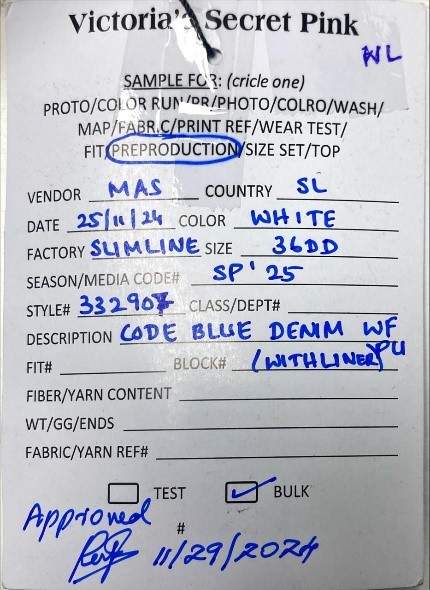 Victoria's Secret Pink
WL
SAMPLE FOR: (cricle one)
PROTO/COLOR RUN/PR/PHOTO/COLRO/WASH/
MAP/FABR.C/PRINT REF/WEAR TEST/
FIT/PREPRODUCTION/SIZE SET/TOP
VENDOR MAS COUNTRY SL
DATE 25/11/24 COLOR WHITE
FACTORY SLIMLINE SIZE 36DD
SEASON/MEDIA CODE# SP'25
STYLE# 332907 CLASS/DEPT#
DESCRIPTION CODE BLUE DENIM WF PU
FIT# BLOCK# (WITH LINER)
FIBER/YARN CONTENT
WT/GG/ENDS
FABRIC/YARN REF#
TEST BULK
Approved #
11/29/2024